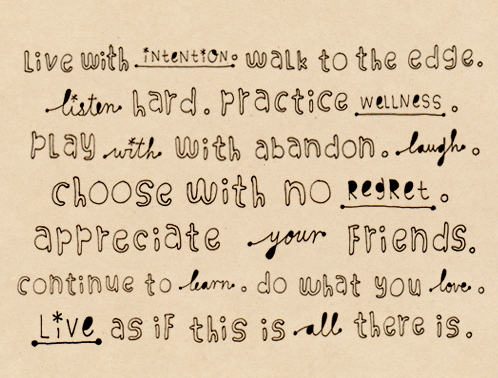 Live with intention. walk to the edge.
listen hard. practice wellness.
play with with abandon. laugh.
choose with no regret.
appreciate your friends.
continue to learn. do what you love.
Live as if this is all there is.